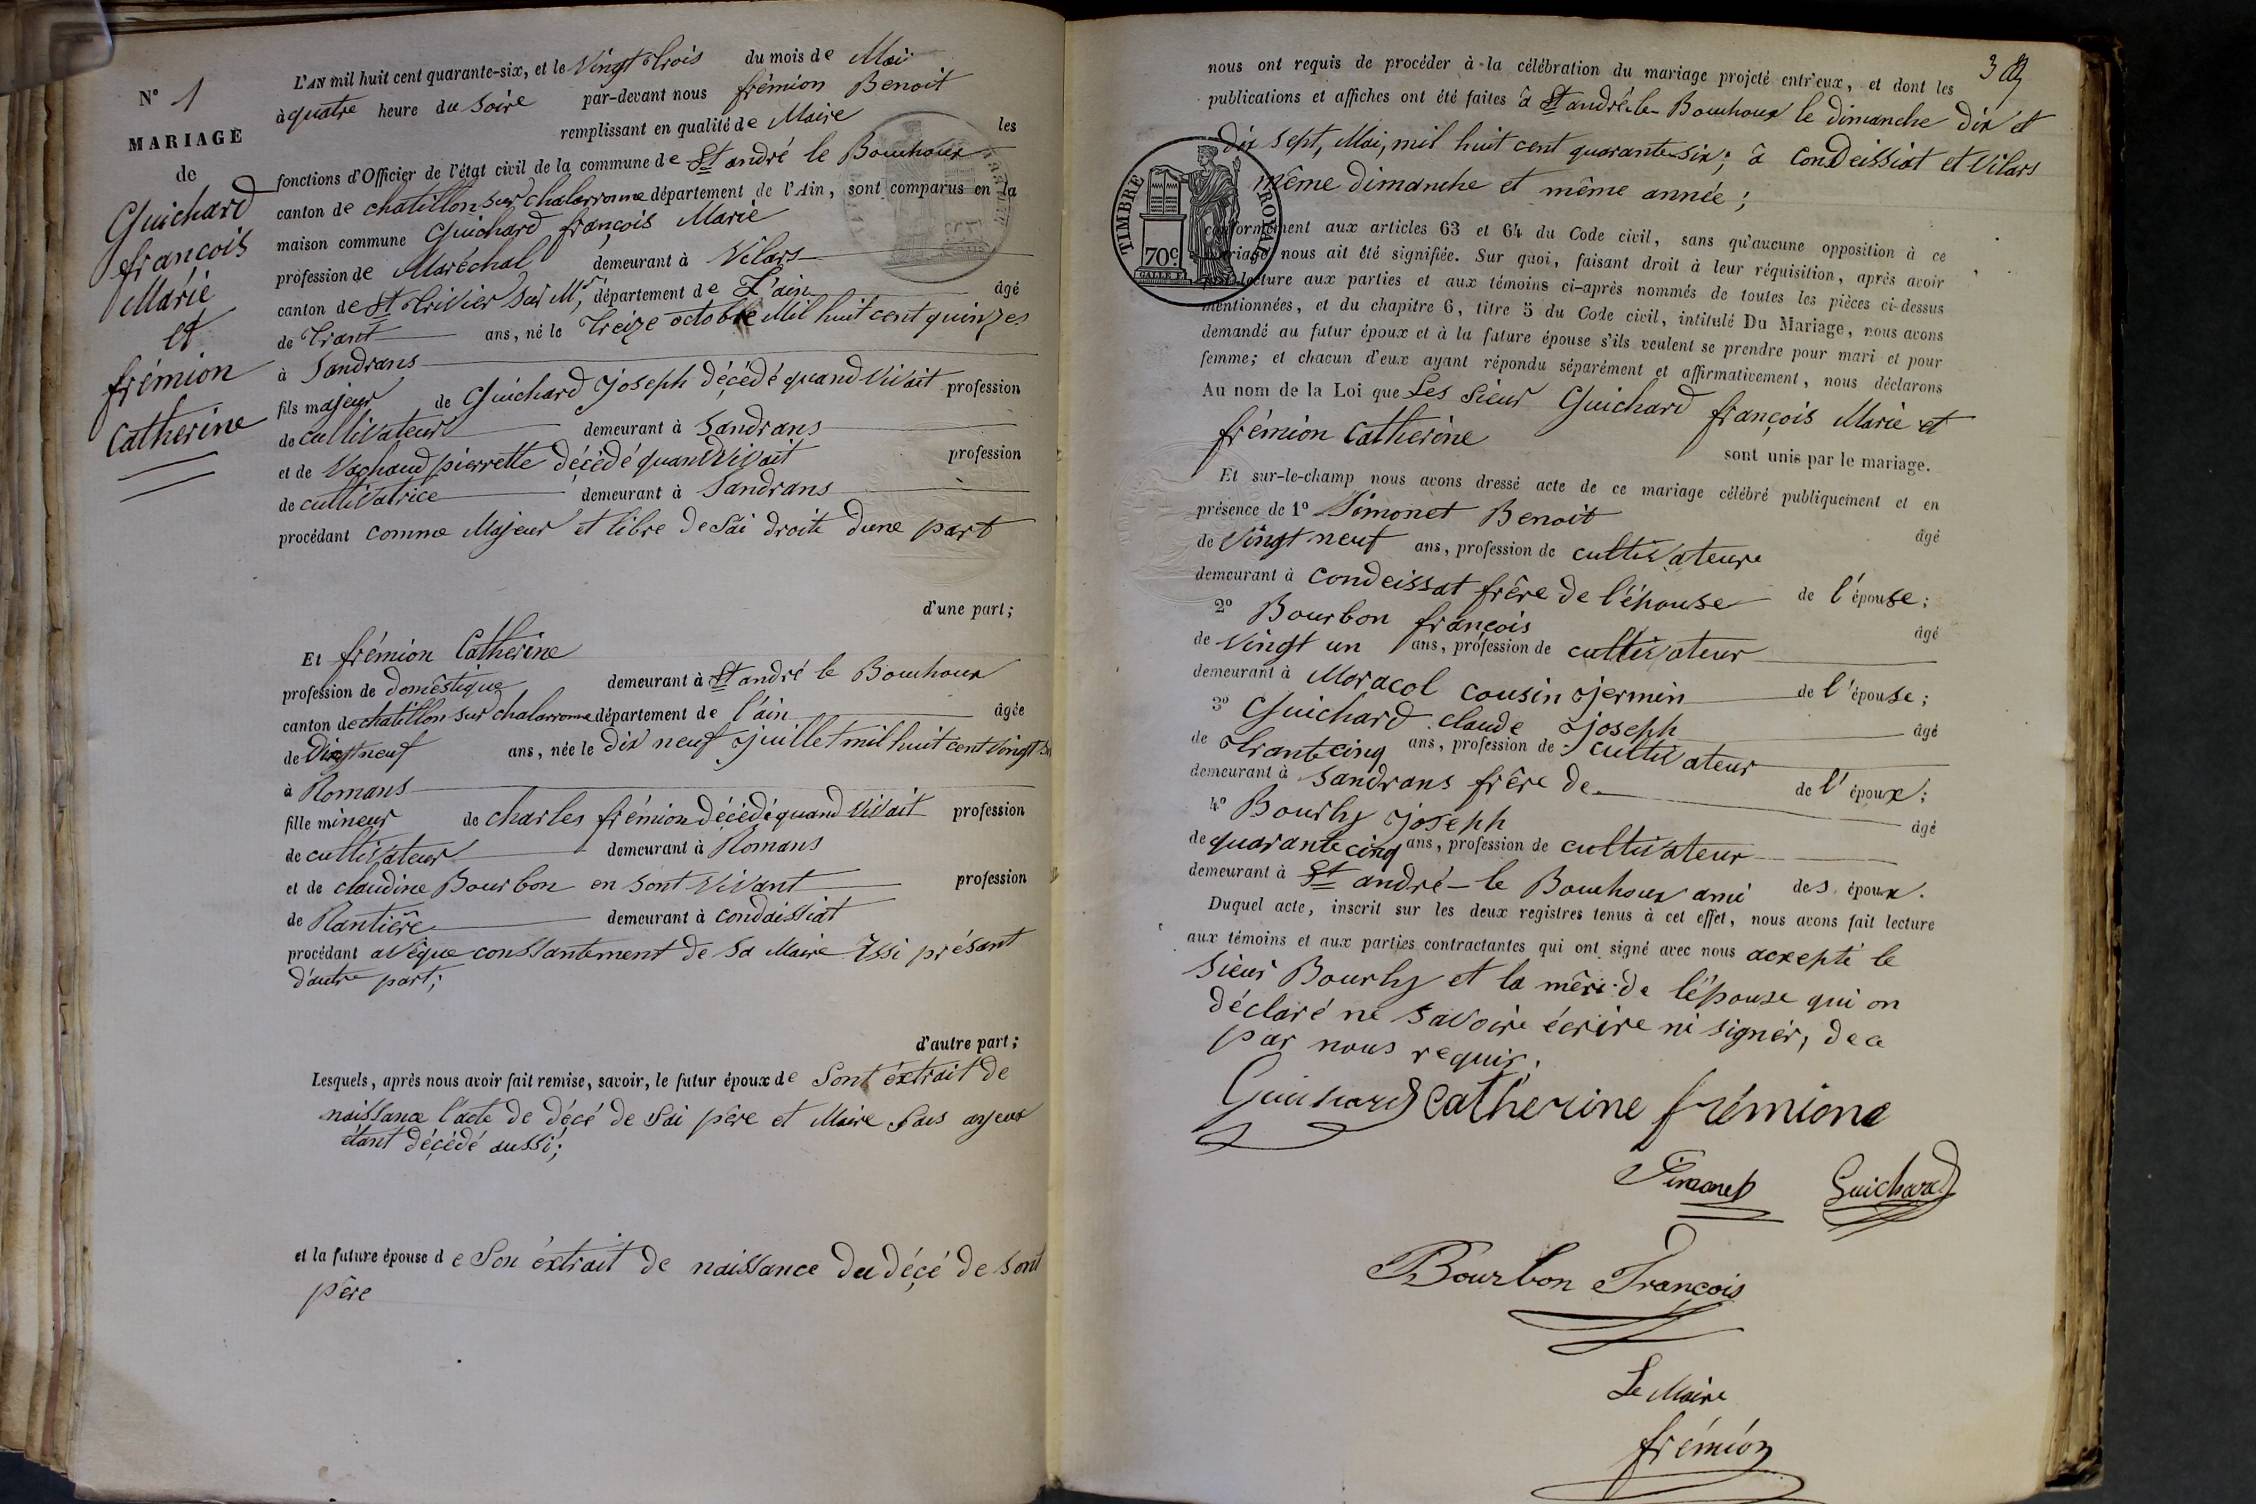 N° 1
MARIAGE
de
Guichard
françois
Marie
et
frémion
Catherine
L'AN mil huit cent quarante-six, et le Vingt trois du mois de Mai
à quatre heure du soire par-devant nous frémion Benoit
remplissant en qualité de Maire les
fonctions d'Officier de l'état civil de la commune de St andré le Bouchoux
canton de chatillon sur chalaronne département de l'Ain, sont comparus en la
maison commune Guichard françois Marie
profession de Maréchal demeurant à Vilars
canton de St trivier sur Ms, département de L'ain âgé
de trant ans, né le treize octobre Mil huit cent quinzes
à Sandrans
fils majeur de Guichard joseph décédé quand vivait profession
de cultivateur demeurant à Sandrans
et de Vachaud pierrette décédé quand vivait profession
de cultivatrice demeurant à Sandrans
procédant comme Majeur et libre de sai droite dune part
d'une part;
Et frémion Catherine
profession de domestique demeurant à St andré le Bouchoux
canton de chatillon sur chalaronne département de l'ain âgée
de Dixneuf ans, née le dix neuf juillet mil huit cent vingt
à Romans
fille mineur de charles frémion décédé quand vivait profession
de cultivateur demeurant à Romans
et de claudine Bourbon en sont vivant profession
de Rantière demeurant à condaissiat
procédant avêque conssantement de sa Maire issi présant
d'autre part;
d'autre part;
Lesquels, après nous avoir fait remise, savoir, le futur époux de sont éxtrait de
naissance l'acte de décé de sai père et Maire sais anjeux
étant décédé aussi;
et la future épouse de Son éxtrait de naissance du déçé de sont
père
3
nous ont requis de procéder à la célébration du mariage projeté entr'eux, et dont les
publications et affiches ont été faites à St andré-le-Bouchoux le dimanche dix et
dix sept, Mai, mil huit cent quarante six; à Condeissiat et Vilars
même dimanche et même année;
TIMBRE ROYAL
70c.
conformément aux articles 63 et 64 du Code civil, sans qu'aucune opposition à ce
mariage nous ait été signifiée. Sur quoi, faisant droit à leur réquisition, après avoir
fait lecture aux parties et aux témoins ci-après nommés de toutes les pièces ci-dessus
mentionnées, et du chapitre 6, titre 5 du Code civil, intitulé Du Mariage, nous avons
demandé au futur époux et à la future épouse s'ils veulent se prendre pour mari et pour
femme; et chacun d'eux ayant répondu séparément et affirmativement, nous déclarons
Au nom de la Loi que Les sieur Guichard françois Marie et
frémion Catherine
sont unis par le mariage.
Et sur-le-champ nous avons dressé acte de ce mariage célébré publiquement et en
présence de 1° Simonet Benoit âgé
de Vingt neuf ans, profession de cultivateure
demeurant à condeissat frère de l'épouse de l'épouse;
2° Bourbon françois âgé
de vingt un ans, profession de cultivateur
demeurant à Moracol cousin jermin de l'épouse;
3° Guichard claude joseph âgé
de trante cinq ans, profession de cultivateur
demeurant à sandrans frère de de l'époux;
4° Bourly joseph âgé
de quarante cinq ans, profession de cultivateur
demeurant à St andré-le Bouchoux ami des époux.
Duquel acte, inscrit sur les deux registres tenus à cet effet, nous avons fait lecture
aux témoins et aux parties contractantes qui ont signé avec nous acxepté le
sieur Bourly et la mère de l'épouse qui on
déclaré ne savoire écrire ni signer, de ce
par nous requis.
Guichard catherine frémione
Simonet Guichard
Bourbon François
Le Maire
frémion